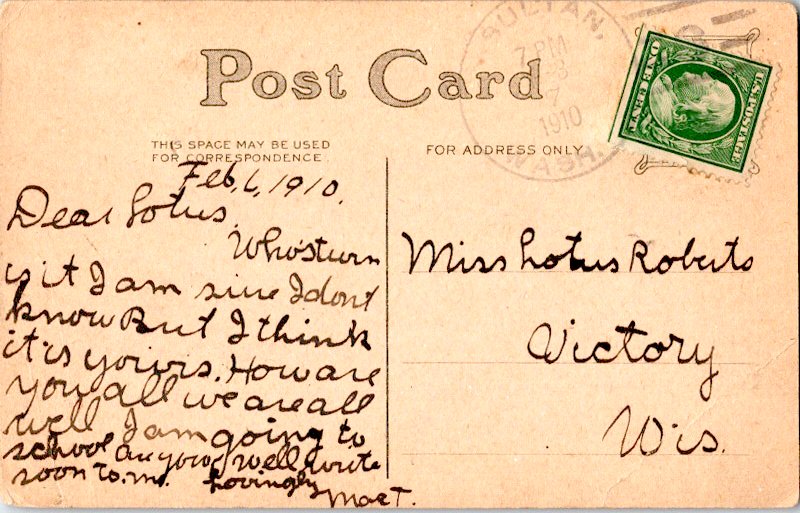 Post Card
SULTAN,
7 PM
7
1910
WASH.
ONE CENT
U.S. POSTAGE
THIS SPACE MAY BE USED
FOR CORRESPONDENCE.
FOR ADDRESS ONLY
Feb, 6, 1910.
Dear Lotus,
Who's turn
is it I am sure I dont
know But I think
it is yours. How are
you all we are all
well I am going to
school are you? Well write
soon to. me. Lovingly
Mae T.
Miss Lotus Roberts
Victory
Wis.